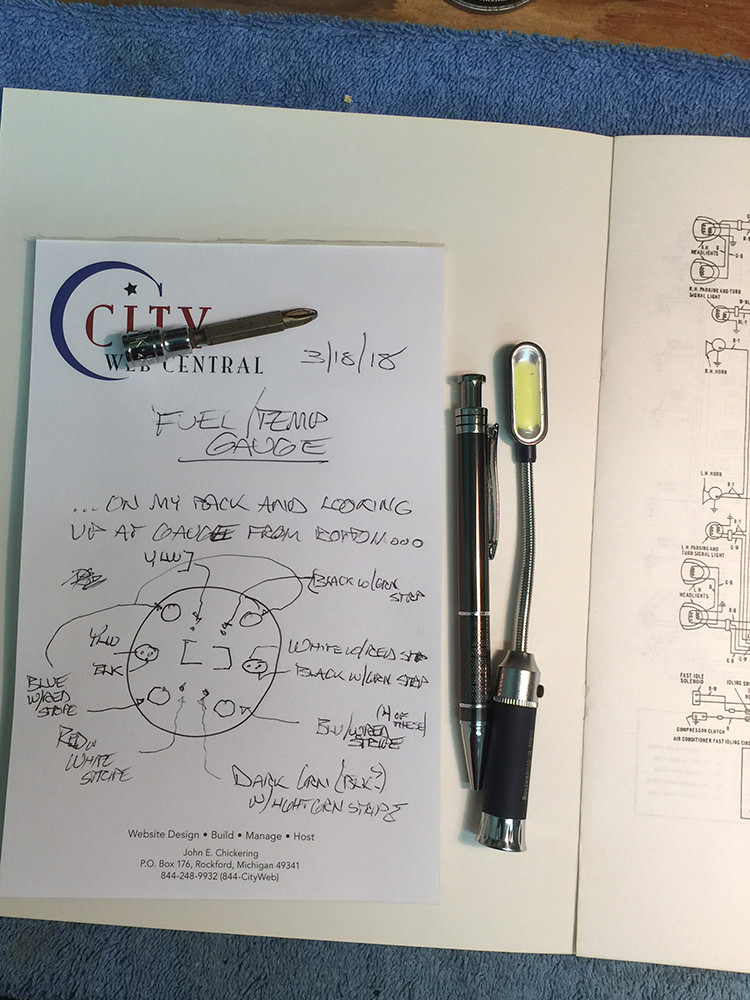 CITY
WEB CENTRAL
3/18/18
FUEL/TEMP
GAUGE
...ON MY BACK AND LOOKING
UP AT GAUGE FROM BOTTOM...
YLW
BLACK W/GRN
STRIP
YLW
BLK
WHITE W/RED STP
BLACK W/GRN STRIP
BLUE
W/RED
STRIPE
(4 OF THESE)
BLU/W RED
STRIPE
RED W
WHITE
STRIPE
DARK GRN (BLK?)
W/LIGHT GRN STRIPE
Website Design • Build • Manage • Host
John E. Chickering
P.O. Box 176, Rockford, Michigan 49341
844-248-9932 (844-CityWeb)
R.H.
HEADLIGHTS
R.H. PARKING AND TURN
SIGNAL LIGHT
R.H. HORN
L.H. HORN
L.H. PARKING AND
TURN SIGNAL LIGHT
L.H.
HEADLIGHTS
FAST IDLE
SOLENOID
IDLING
COMPRESSOR CLUTCH
AIR CONDITIONER FAST IDLING